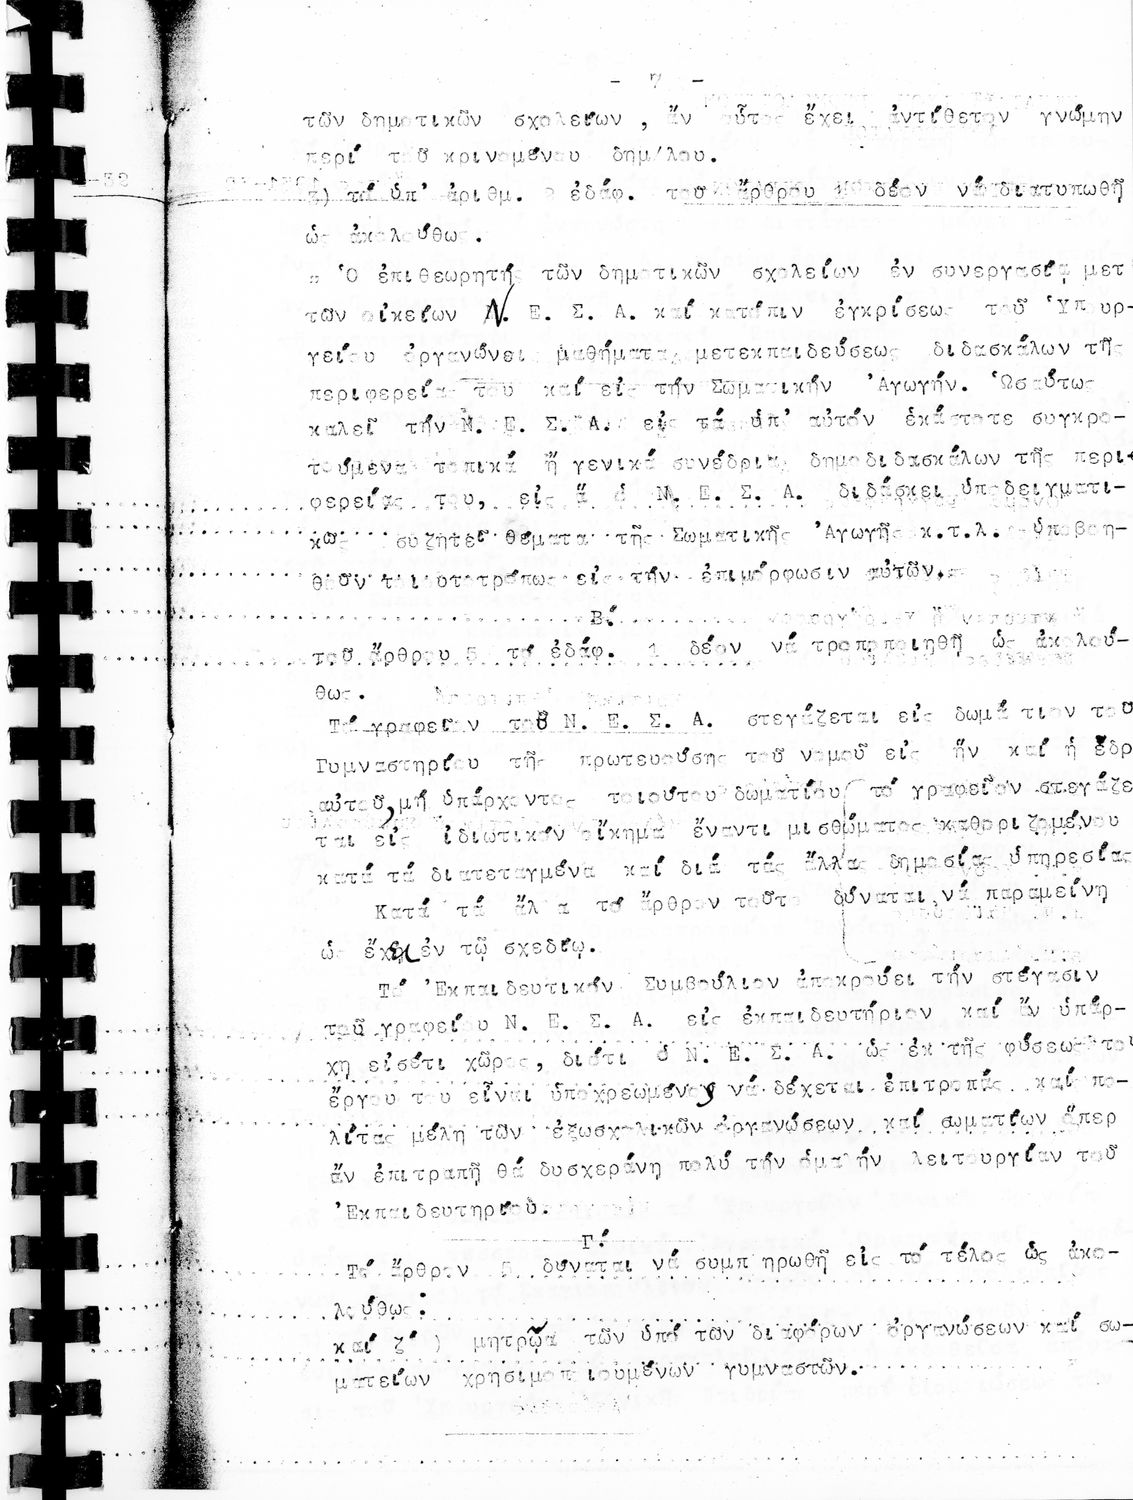 - 7 -
τῶν δημοτικῶν σχολείων , ἄν οὗτος ἔχει ἀντίθετον γνώμην
περί τοῦ κρινομένου δημ/λου.
τό ὑπ' ἀριθμ. 2 ἐδάφ. τοῦ ἄρθρου δέον νά διατυπωθῇ
ὡς ἀκολούθως.
" Ὁ ἐπιθεωρητής τῶν δημοτικῶν σχολείων ἐν συνεργασίᾳ μετ
τῶν οἰκείων Ν. Ε. Σ. Α. καί κατόπιν ἐγκρίσεως τοῦ Ὑπουρ-
γείου ὀργανώνει μαθήματα μετεκπαιδεύσεως διδασκάλων τῆς
περιφερείας του καί εἰς τήν Σωματικήν Ἀγωγήν. Ὡσαύτως
καλεῖ τήν Ν. Ε. Σ. Α. εἰς τά ὑπ' αὐτόν ἑκάστοτε συγκρο-
τούμενα τοπικά ἤ γενικά συνέδρια δημοδιδασκάλων τῆς περι-
φερείας του, εἰς ἅ ὁ Ν. Ε. Σ. Α. διδάσκει ὑποδειγματι-
κῶς συζητεῖ θέματα τῆς Σωματικῆς Ἀγωγῆς κ.τ.λ. ὑποβοη-
θῶν τοιουτοτρόπως εἰς τήν ἐπιμόρφωσιν αὐτῶν.
Β.
τοῦ ἄρθρου 5 τό ἐδάφ. 1 δέον νά τροποποιηθῇ ὡς ἀκολού-
θως.
Τό γραφεῖον τοῦ Ν. Ε. Σ. Α. στεγάζεται εἰς δωμά τιον τοῦ
Γυμναστηρίου τῆς πρωτευούσης τοῦ νομοῦ εἰς ἥν καί ἡ ἕδρ
αὐτοῦ, μή ὑπάρχοντος τοιούτου δωματίου τό γραφεῖον στεγάζε
ται εἰς ἰδιωτικόν οἴκημα ἔναντι μισθώματος καθοριζομένου
κατά τά διατεταγμένα καί διά τάς ἄλλας δημοσίας ὑπηρεσίας
Κατά τά ἄλ α τό ἄρθρον τοῦτο δύναται νά παραμείνῃ
ὡς ἔχει ἐν τῷ σχεδίῳ.
Τό Ἐκπαιδευτικόν Συμβούλιον ἀποκρούει τήν στέγασιν
τοῦ γραφείου Ν. Ε. Σ. Α. εἰς ἐκπαιδευτήριον καί ἄν ὑπάρ-
χῃ εἰσέτι χῶρος, διότι ὁ Ν. Ε. Σ. Α. ὡς ἐκ τῆς φύσεως τοῦ
ἔργου του εἶναι ὑποχρεωμένος νά δέχεται ἐπιτροπάς καί πο-
λίτας μέλη τῶν ἐξωσχολικῶν ὀργανώσεων καί σωματίων ὅπερ
ἄν ἐπιτραπῇ θά δυσχεράνῃ πολύ τήν ὁμαλήν λειτουργίαν τοῦ
Ἐκπαιδευτηρίου.
Γ.
Τό ἄρθρον 5 δύναται νά συμπ ηρωθῇ εἰς τό τέλος ὡς ἀκο-
λούθως:
καί ζ' ) μητρῶα τῶν ὑπό τῶν διαφόρων ὀργανώσεων καί σω-
ματείων χρησιμοποιουμένων γυμναστῶν.